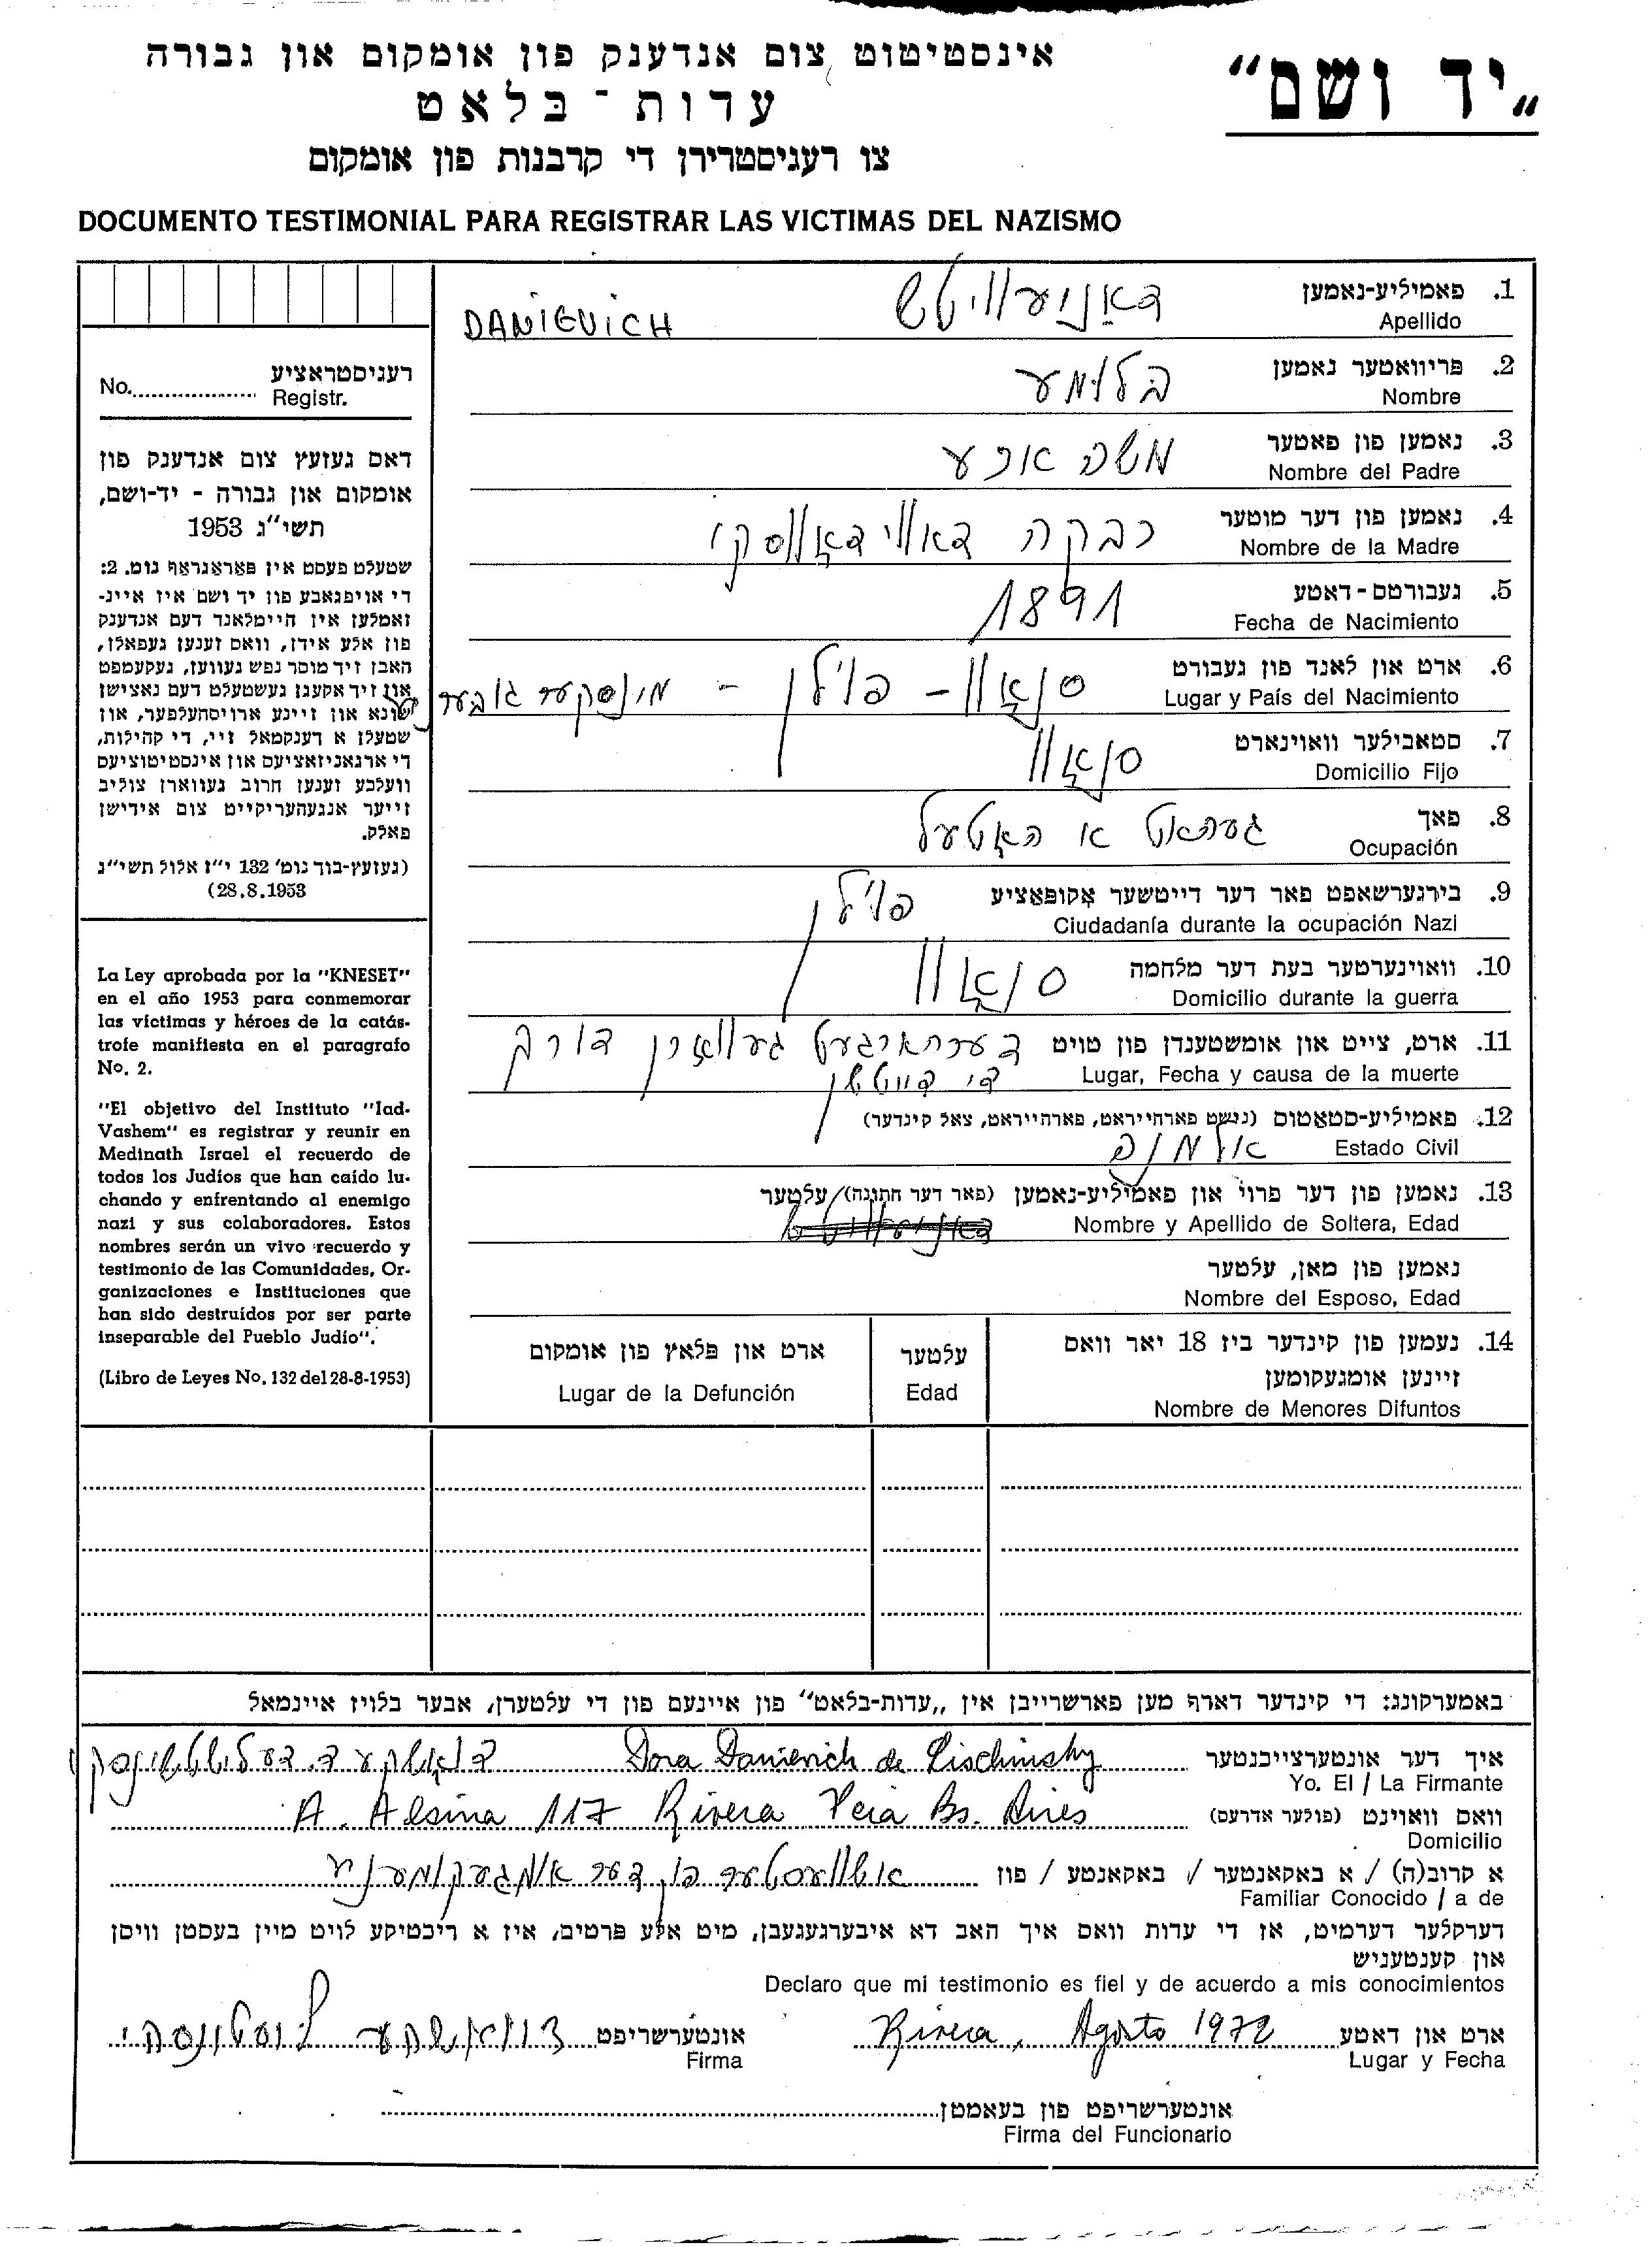 „יד ושם“
אינסטיטוט צום אנדענק פון אומקום און גבורה
עדות־בלאט
צו רעגיסטרירן די קרבנות פון אומקום
DOCUMENTO TESTIMONIAL PARA REGISTRAR LAS VICTIMAS DEL NAZISMO
1. פאמיליע-נאמען דאַניעוויטש
Apellido DANIEVICH
2. פריוואטער נאמען בלומע
Nombre
3. נאמען פון פאטער משה ארע
Nombre del Padre
4. נאמען פון דער מוטער רבקה
Nombre de la Madre
5. געבורטס-דאטע 1891
Fecha de Nacimiento
6. ארט און לאנד פון געבורט סנאָוו – פוילן – מינסקער גובער
Lugar y País del Nacimiento
7. סטאבילער וואוינארט סנאָוו
Domicilio Fijo
8. פאך געהאט א האָטעל
Ocupación
9. בירגערשאפט פאר דער דייטשער אָקופּאציע פוילן
Ciudadanía durante la ocupación Nazi
10. וואוינערטער בעת דער מלחמה סנאָוו
Domicilio durante la guerra
11. ארט, צייט און אומשטענדן פון טויט דערהארגעט געוואָרן דורך
Lugar, Fecha y causa de la muerte די דייטשן
12. פאמיליע-סטאטוס (נישט פארהייראט, פארהייראט, צאל קינדער)
Estado Civil אלמנה
13. נאמען פון דער פרוי און פאמיליע-נאמען (פאר דער חתונה)/עלטער
Nombre y Apellido de Soltera, Edad דאַניעוויטש
נאמען פון מאן, עלטער
Nombre del Esposo, Edad
14. נעמען פון קינדער ביז 18 יאר וואס
זיינען אומגעקומען
Nombre de Menores Difuntos
עלטער
Edad
ארט און פלאץ פון אומקום
Lugar de la Defunción
רעגיסטראציע
No. Registr.
דאס געזעץ צום אנדענק פון
אומקום און גבורה - יד-ושם,
תשי״ג 1953
שטעלט פעסט אין פאראגראף נומ. 2:
די אויפגאבע פון יד ושם איז איינ-
זאמלען אין היימלאנד דעם אנדענק
פון אלע אידן, וואס זענען געפאלן,
האבן זיך מוסר נפש געווען, געקעמפט
און זיך אקעגן געשטעלט דעם נאצישן
שונא און זיינע ארויסהעלפער, און
שטעלן א דענקמאל זיי, די קהילות,
די ארגאניזאציעס און אינסטיטוציעס
וועלכע זענען חרוב געווארן צוליב
זייער אנגעהעריקייט צום אידישן
פאלק.
(געזעץ-בוך נומ׳ 132 י״ז אלול תשי״ג
28.8.1953)
La Ley aprobada por la "KNESET"
en el año 1953 para conmemorar
las víctimas y héroes de la catás-
trofe manifiesta en el paragrafo
No. 2.
"El objetivo del Instituto "Iad-
Vashem" es registrar y reunir en
Medinath Israel el recuerdo de
todos los Judíos que han caído lu-
chando y enfrentando al enemigo
nazi y sus colaboradores. Estos
nombres serán un vivo recuerdo y
testimonio de las Comunidades, Or-
ganizaciones e Instituciones que
han sido destruídos por ser parte
inseparable del Pueblo Judío".
(Libro de Leyes No. 132 del 28-8-1953)
באמערקונג: די קינדער דארף מען פארשרייבן אין „עדות-בלאט“ פון איינעם פון די עלטערן, אבער בלויז איינמאל
איך דער אונטערצייכנטער Dora Danievich de Lischinsky
Yo. El / La Firmante
וואס וואוינט (פולער אדרעס) A. Alsina 117 Rivera Pcia Bs. Aires
Domicilio
א קרוב(ה) / א באקאנטער / באקאנטע / פון א שוועסטער פון דער אומגעקומענער
Familiar Conocido / a de
דערקלער דערמיט, אז די עדות וואס איך האב דא איבערגעגעבן, מיט אלע פרטים, איז א ריכטיקע לויט מיין בעסטן וויסן
און קענטעניש
Declaro que mi testimonio es fiel y de acuerdo a mis conocimientos
ארט און דאטע Rivera, Agosto 1972 אונטערשריפט
Lugar y Fecha Firma
אונטערשריפט פון בעאמטן
Firma del Funcionario